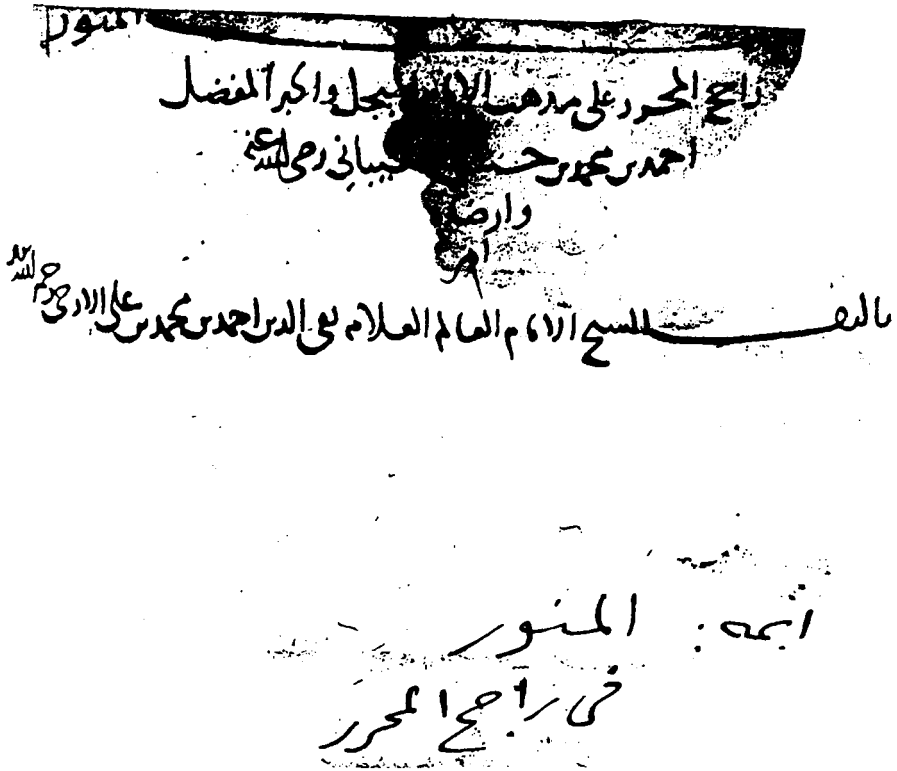 المنور
راجح المحرر على مذهب الامام المبجل والحبر المفضل
احمد بن محمد بن حنبل الشيباني رضي الله عنه
وارضاه
امين
تاليف الشيخ الامام العالم العلامة تقي الدين احمد بن محمد بن علي الادمي رحمه الله
اسمه : المنور
في راجح المحرر